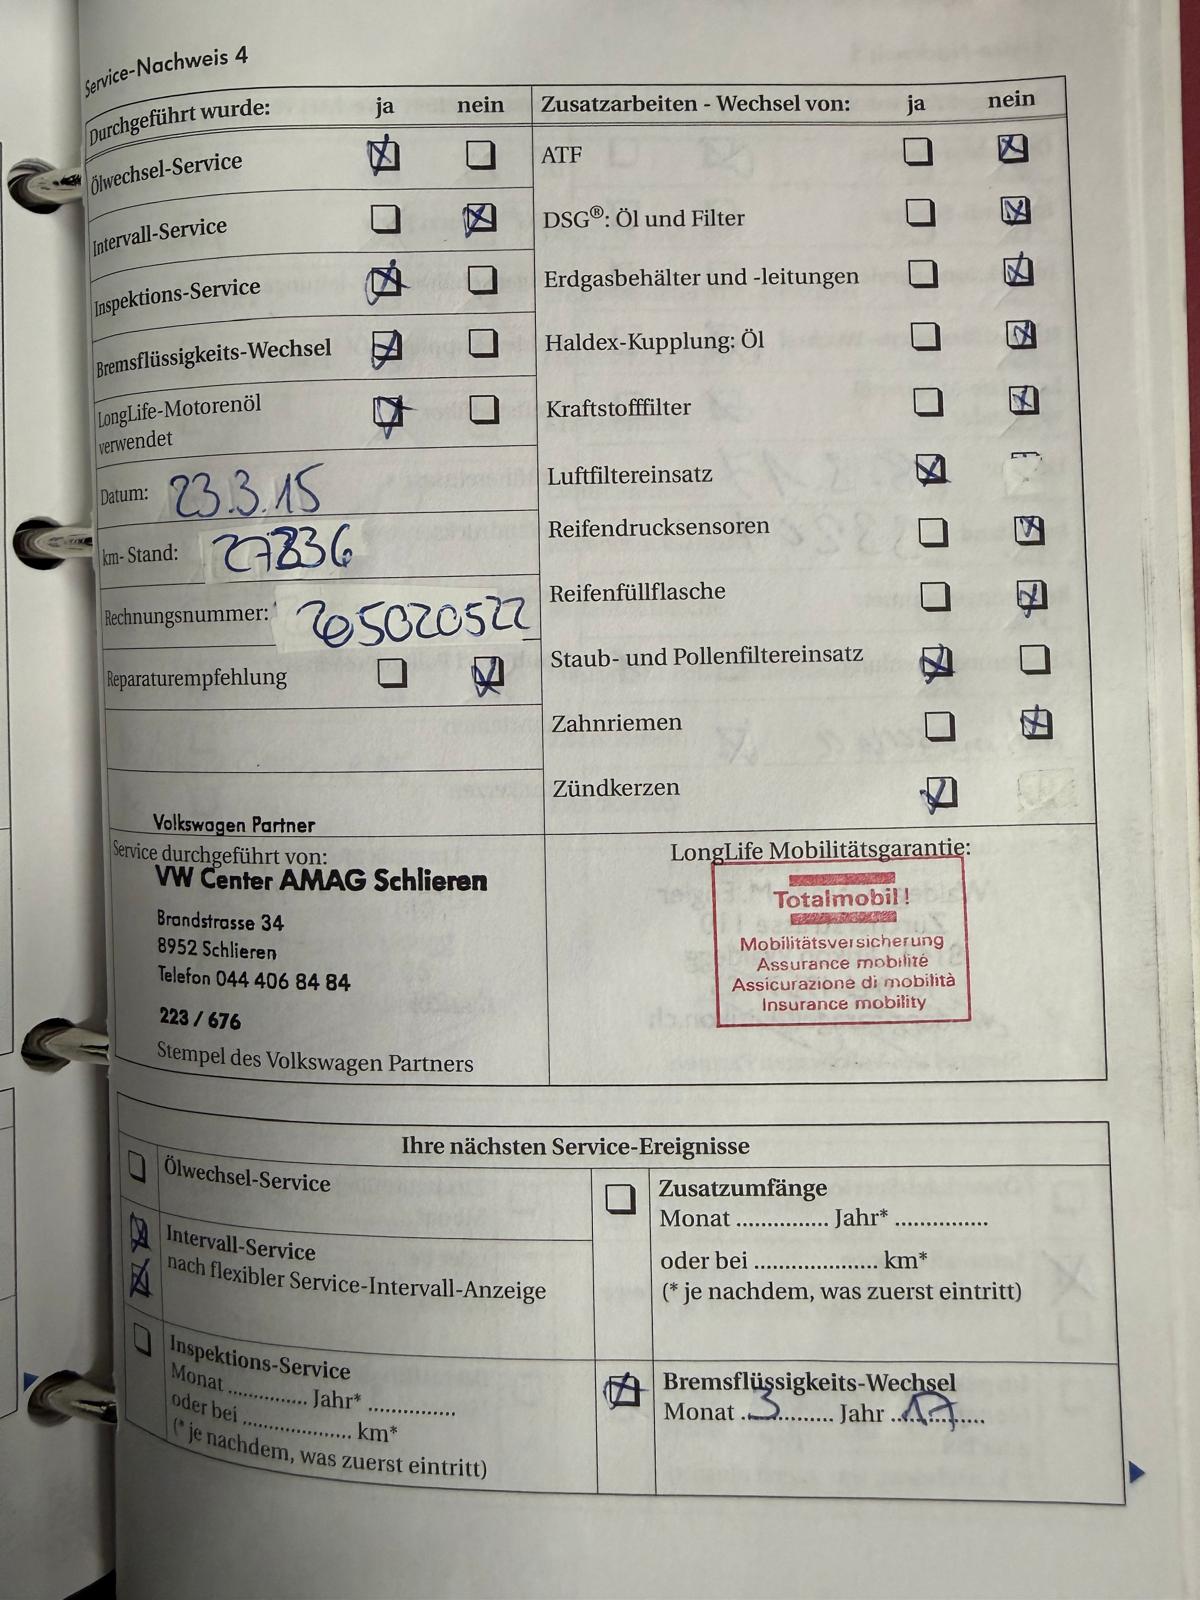 Service-Nachweis 4
Durchgeführt wurde: ja nein
Ölwechsel-Service
Intervall-Service
Inspektions-Service
Bremsflüssigkeits-Wechsel
LongLife-Motorenöl
verwendet
Datum: 23.3.15
km- Stand: 27836
Rechnungsnummer: 265020522
Reparaturempfehlung
Zusatzarbeiten - Wechsel von: ja nein
ATF
DSG®: Öl und Filter
Erdgasbehälter und -leitungen
Haldex-Kupplung: Öl
Kraftstofffilter
Luftfiltereinsatz
Reifendrucksensoren
Reifenfüllflasche
Staub- und Pollenfiltereinsatz
Zahnriemen
Zündkerzen
Volkswagen Partner
Service durchgeführt von:
VW Center AMAG Schlieren
Brandstrasse 34
8952 Schlieren
Telefon 044 406 84 84
223 / 676
Stempel des Volkswagen Partners
LongLife Mobilitätsgarantie:
Totalmobil!
Mobilitätsversicherung
Assurance mobilité
Assicurazione di mobilità
Insurance mobility
Ihre nächsten Service-Ereignisse
Ölwechsel-Service
Intervall-Service
nach flexibler Service-Intervall-Anzeige
Inspektions-Service
Monat ............. Jahr* ..............
oder bei ................. km*
(* je nachdem, was zuerst eintritt)
Zusatzumfänge
Monat ............... Jahr* ...............
oder bei .................... km*
(* je nachdem, was zuerst eintritt)
Bremsflüssigkeits-Wechsel
Monat ..3.......... Jahr ..17.....